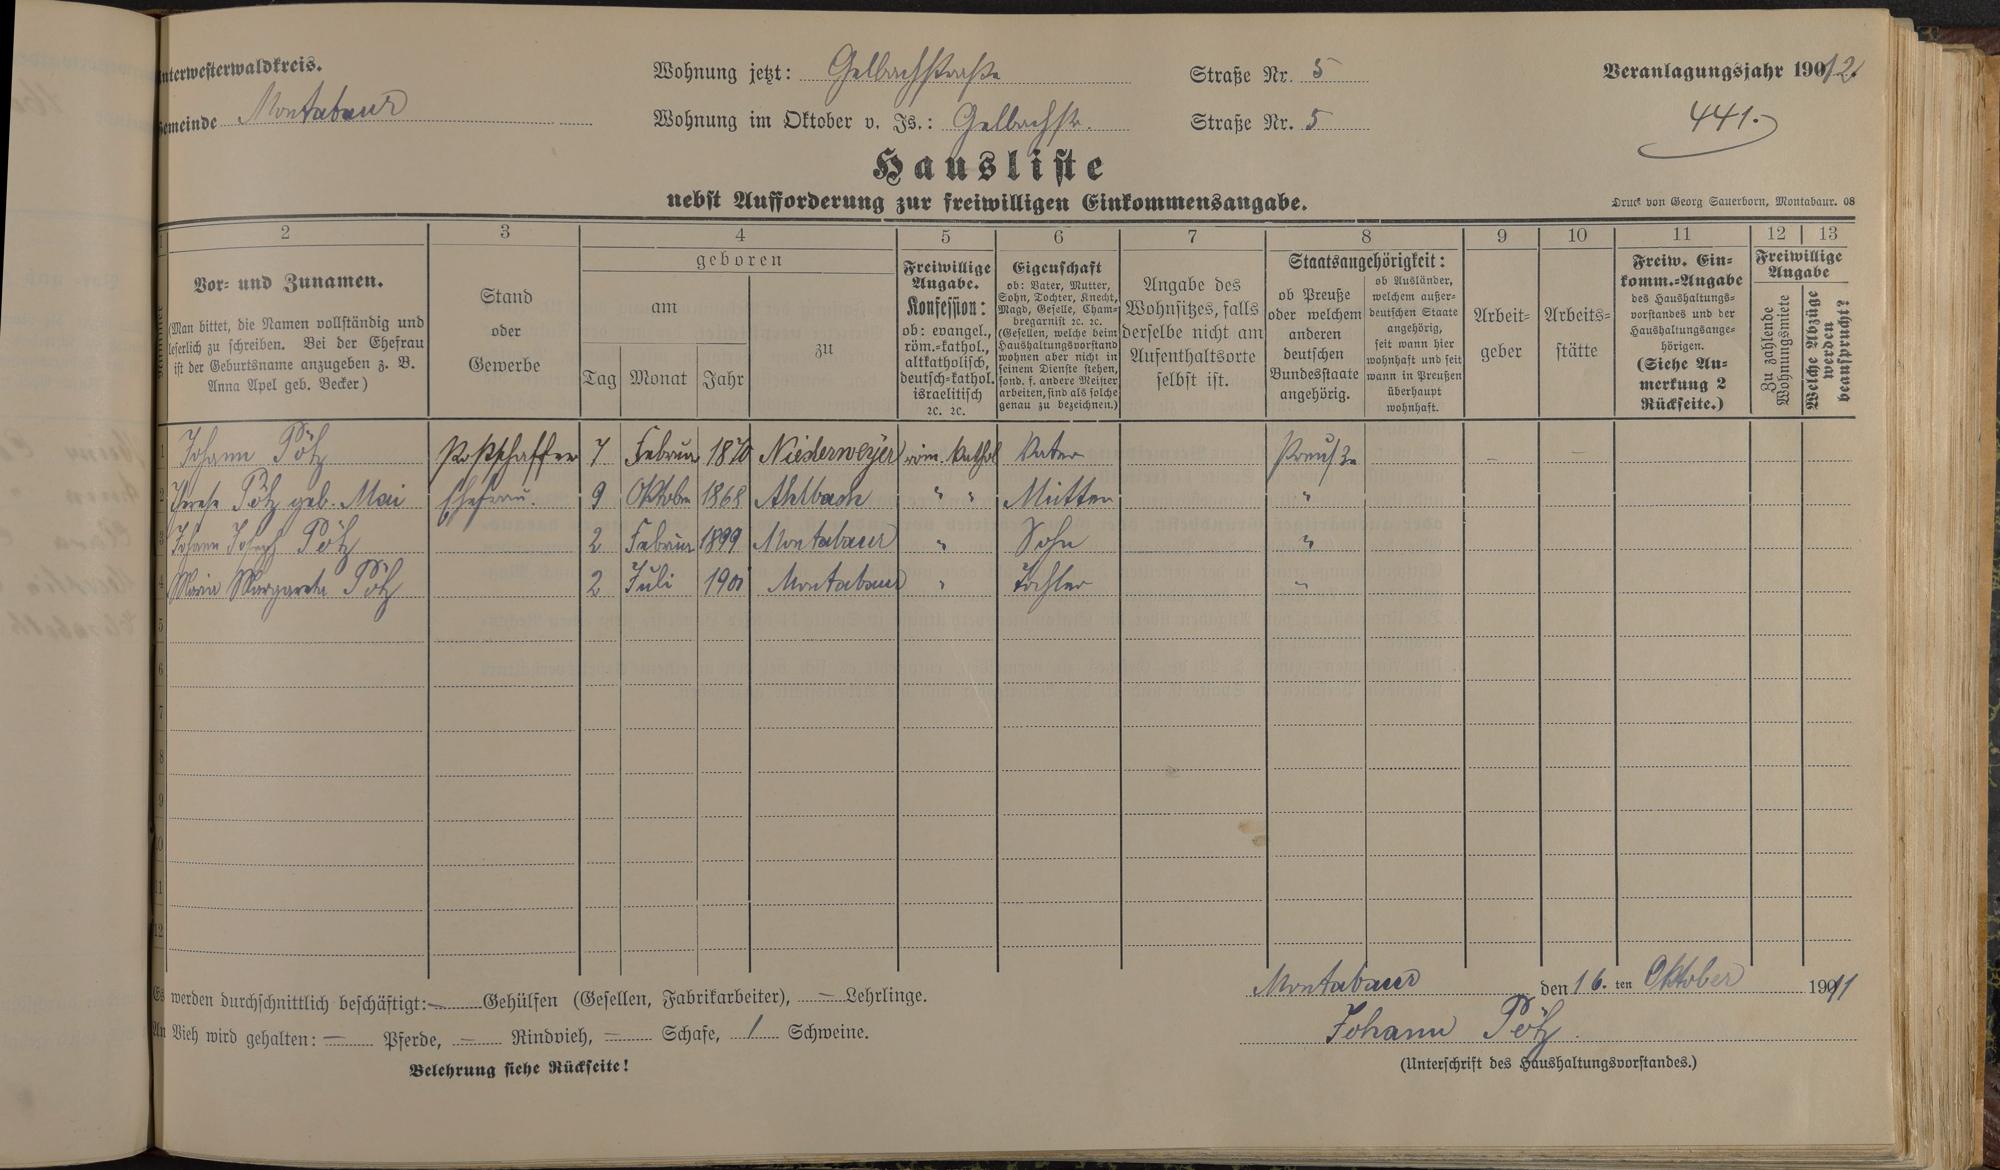 Unterwesterwaldkreis.
Gemeinde Montabaur
Wohnung jetzt: Gelbachstraße Straße Nr. 5
Wohnung im Oktober v. Js.: Gelbachstr. Straße Nr. 5
Veranlagungsjahr 1912.
441.
Hausliste
nebst Aufforderung zur freiwilligen Einkommensangabe.
Druck von Georg Sauerborn, Montabaur. 08
1 2 3 4 5 6 7 8 9 10 11 12 13
Vor- und Zunamen.
(Man bittet, die Namen vollständig und
leserlich zu schreiben. Bei der Ehefrau
ist der Geburtsname anzugeben z. B.
Anna Apel geb. Becker)
Stand
oder
Gewerbe
geboren
am
Tag Monat Jahr
zu
Freiwillige
Angabe.
Konfession:
ob: evangel.,
röm.-kathol.,
altkatholisch,
deutsch-kathol.
israelitisch
ꝛc. ꝛc.
Eigenschaft
ob: Vater, Mutter,
Sohn, Tochter, Knecht,
Magd, Geselle, Cham-
bregarnist ꝛc. ꝛc.
(Gesellen, welche beim
Haushaltungsvorstand
wohnen aber nicht in
seinem Dienste stehen,
sond. f. andere Meister
arbeiten, sind als solche
genau zu bezeichnen.)
Angabe des
Wohnsitzes, falls
derselbe nicht am
Aufenthaltsorte
selbst ist.
Staatsangehörigkeit:
ob Preuße
oder welchem
anderen
deutschen
Bundesstaate
angehörig.
ob Ausländer,
welchem außer-
deutschen Staate
angehörig,
seit wann hier
wohnhaft und seit
wann in Preußen
überhaupt
wohnhaft.
Arbeit-
geber
Arbeits-
stätte
Freiw. Ein-
komm.-Angabe
des Haushaltungs-
vorstandes und der
Haushaltungsange-
hörigen.
(Siehe An-
merkung 2
Rückseite.)
Freiwillige
Angabe
Zu zahlende
Wohnungsmiete
Welche Abzüge
werden
beansprucht?
1 Johann Pötz Postschaffner 7 Februar 1870 Niederweyer röm. kathol Vater Preuße – –
2 Therese Pötz geb. Mai Ehefrau. 9 Oktober 1868 Ahlbach " " Mutter "
3 Johann Joseph Pötz 2 Februar 1899 Montabaur " Sohn "
4 Maria Margareta Pötz 2 Juli 1901 Montabaur " Tochter "
5
6
7
8
9
10
11
12
Es werden durchschnittlich beschäftigt: — Gehülfen (Gesellen, Fabrikarbeiter), — Lehrlinge.
An Vieh wird gehalten: — Pferde, — Rindvieh, — Schafe, 1 Schweine.
Belehrung siehe Rückseite!
Montabaur den 16. ten Oktober 1911
Johann Pötz.
(Unterschrift des Haushaltungsvorstandes.)